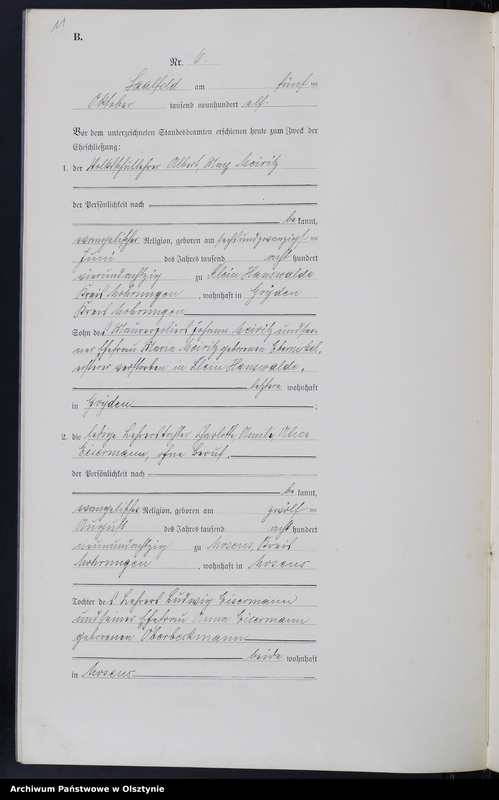 11
B.
Nr. 6.
Saalfeld am fünften
Oktober tausend neunhundert elf.
Vor dem unterzeichneten Standesbeamten erschienen heute zum Zweck der
Eheschließung:
1. der Volksschullehrer Albert Max Moiritz
der Persönlichkeit nach
be kannt,
evangelischer Religion, geboren am sechsundzwanzigsten
Juni des Jahres tausend acht hundert
vierundachtzig zu Klein Hanswalde
Kreis Mohrungen, wohnhaft in Goyden
Kreis Mohrungen
Sohn des Maurerpoliers Johann Moiritz und sei-
ner Ehefrau Maria Moiritz geborenen
ersterer verstorben in Klein Hanswalde,
letztere wohnhaft
in Goyden ;
2. die ledige Lehrerstochter Charlotte Amilie Alice
Eisermann, ohne Beruf,
der Persönlichkeit nach
be kannt,
evangelischer Religion, geboren am zwölften
August des Jahres tausend acht hundert
neunundachtzig zu Mosens, Kreis
Mohrungen, wohnhaft in Mosens
Tochter des Lehrers Ludwig Eisermann
und seiner Ehefrau Anna Eisermann
geborenen
beide wohnhaft
in Mosens
Archiwum Państwowe w Olsztynie